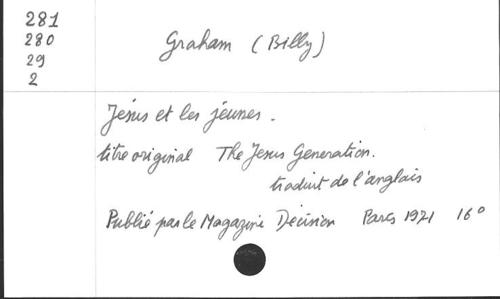 281
280
29
2
Graham (Billy)
Jésus et les jeunes.
titre original The Jesus Generation.
traduit de l'anglais
Publié par le Magazine Décision Paris 1971 16°